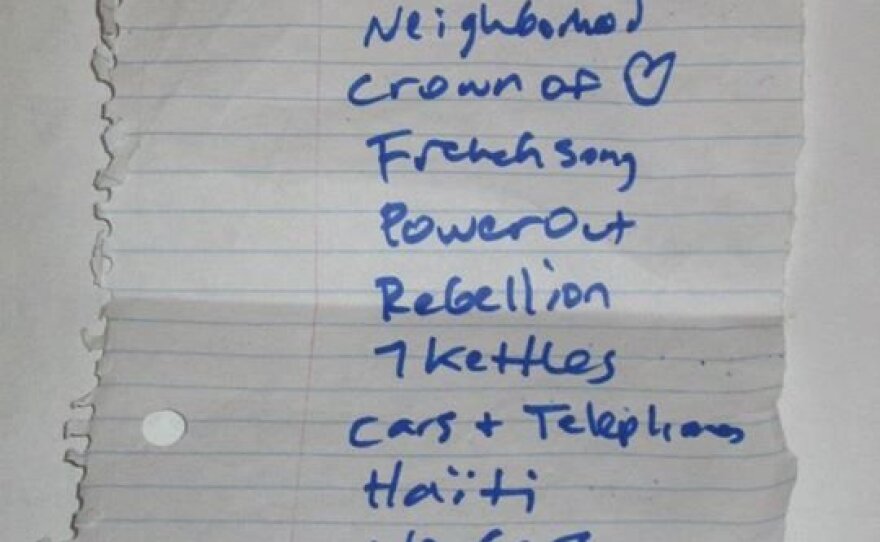 Neighborhood
Crown of ♡
French Song
Power Out
Rebellion
7 Kettles
Cars + Telephones
Haïti